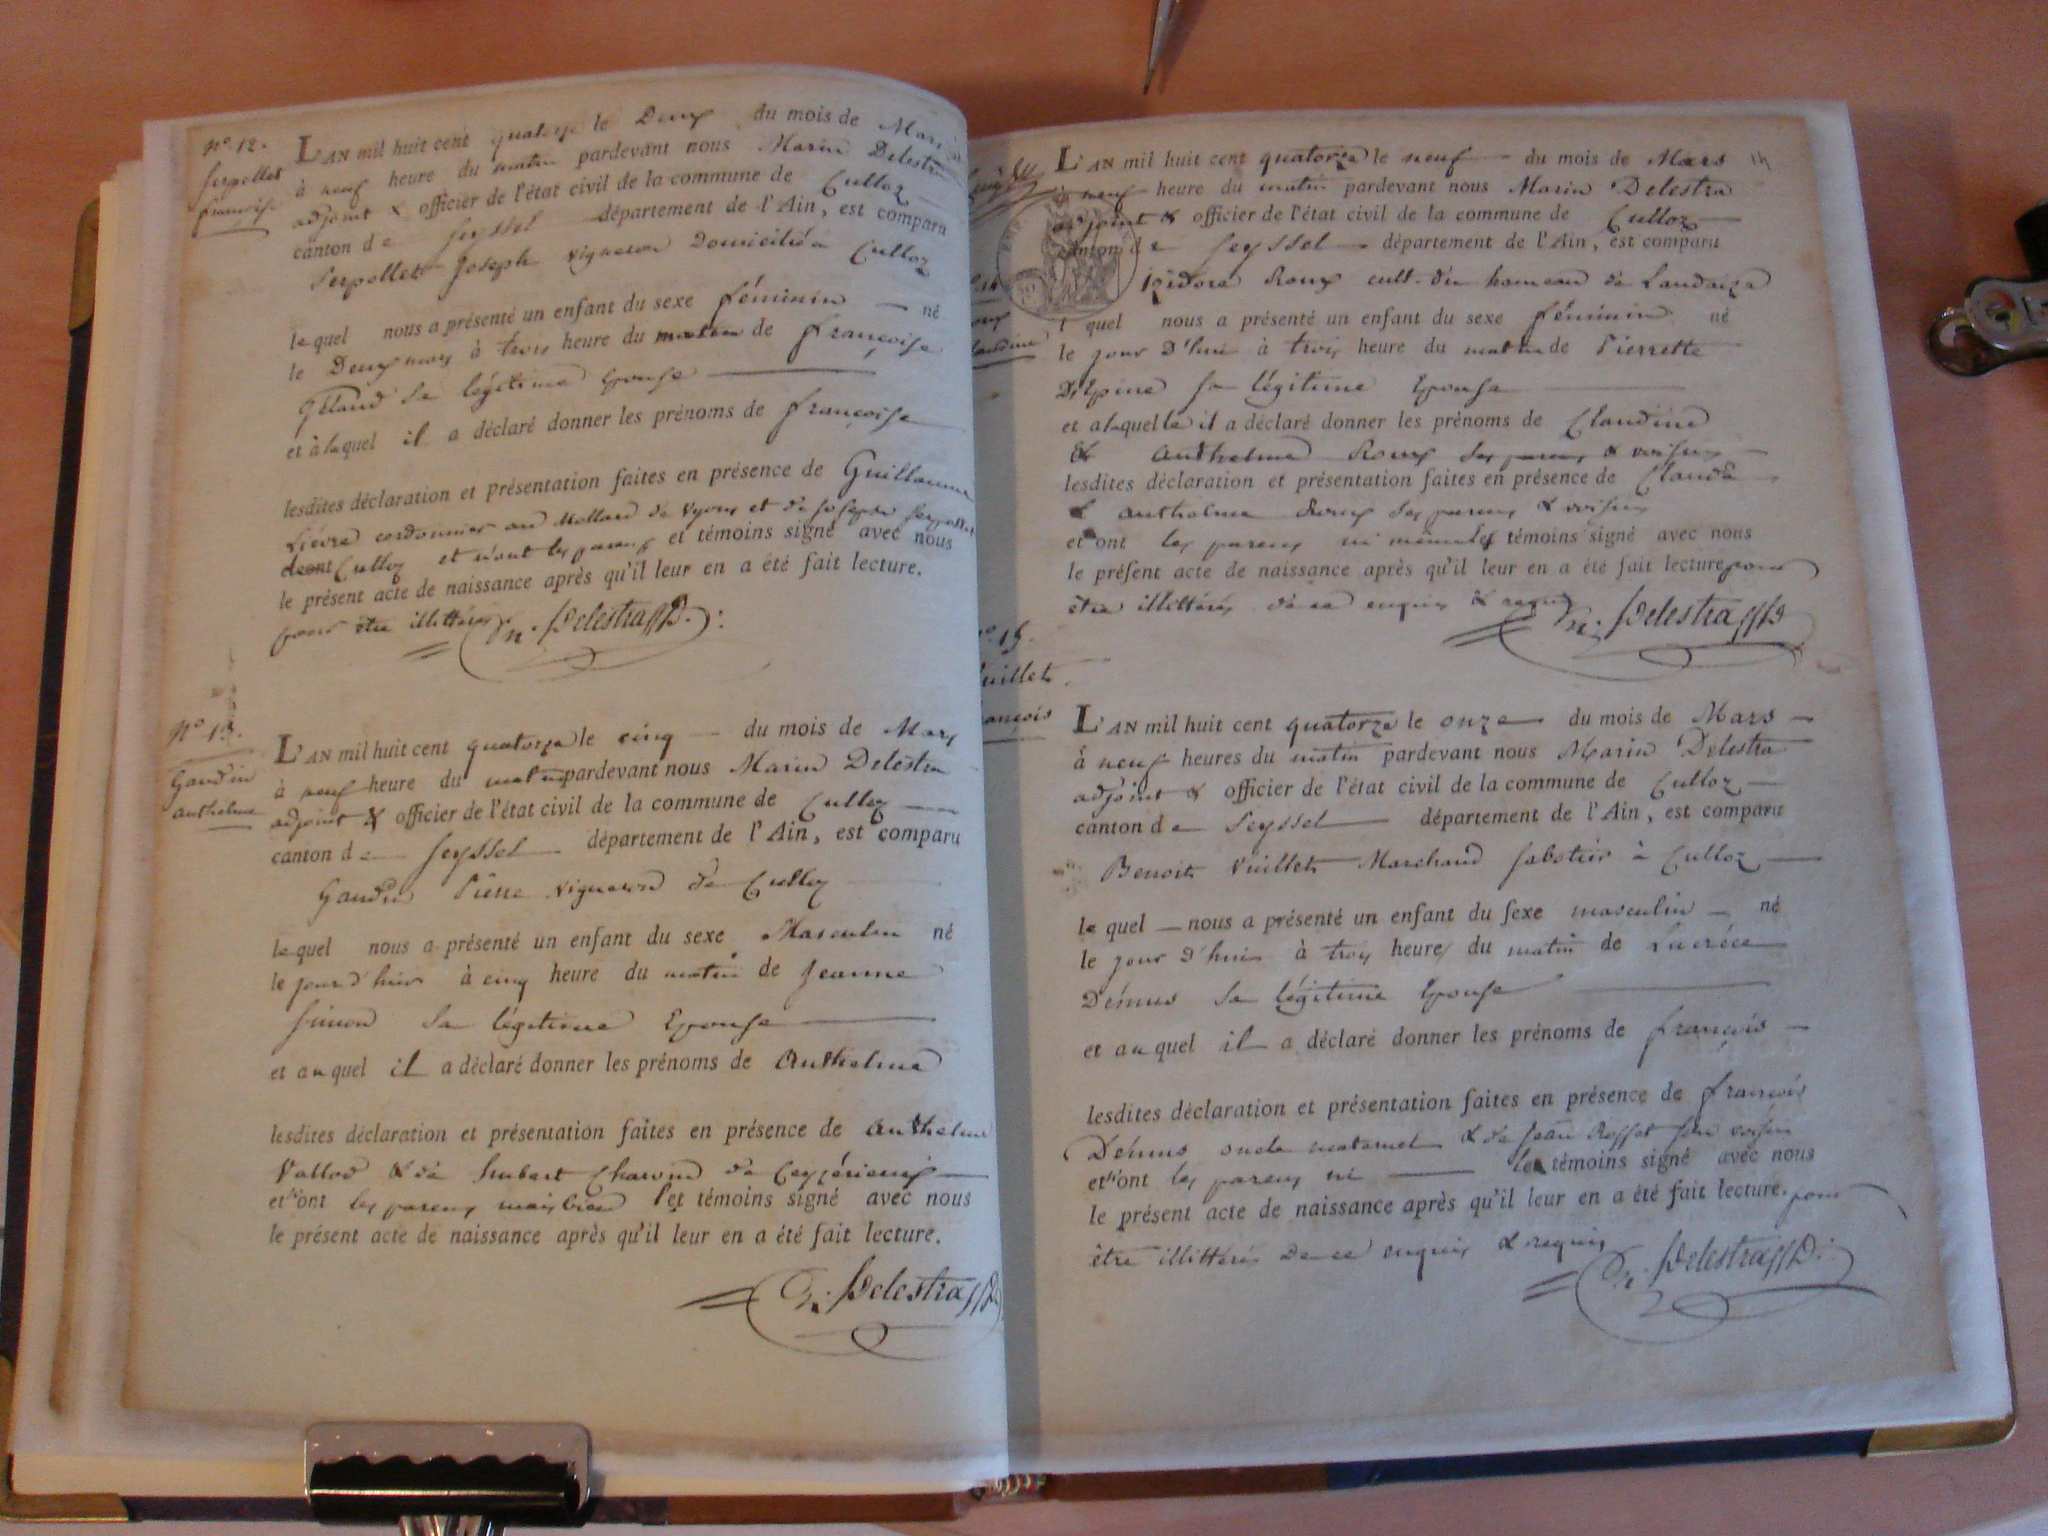 N° 12.
Serpollet
françoise
L'AN mil huit cent quatorze le Deux du mois de Mars
à neuf heure du matin pardevant nous Marin Delestra
adjoint & officier de l'état civil de la commune de Culloz
canton de Seyssel département de l'Ain, est comparu
Serpollet Joseph vigneron Domicilié à Culloz
lequel nous a présenté un enfant du sexe féminin né
le Deux mars à trois heure du matin de françoise
sa légitime Epouse
et à laquel il a déclaré donner les prénoms de françoise
lesdites déclaration et présentation faites en présence de Guillaume
Lièvre cordonnier au Mollard de Vyons et de Joseph Serpollet
Culloz et n'ont les parens et témoins signé avec nous
le présent acte de naissance après qu'il leur en a été fait lecture.
pour être illittérés M. Delestra
N° 13.
Gaudin
anthelme
L'AN mil huit cent quatorze le cinq du mois de Mars
à neuf heure du matin pardevant nous Marin Delestra
adjoint & officier de l'état civil de la commune de Culloz
canton de Seyssel département de l'Ain, est comparu
Gaudin Pierre vigneron de Culloz
lequel nous a présenté un enfant du sexe Masculin né
le jour d'hier à cinq heure du matin de Jeanne
Simon sa légitime Epouse
et auquel il a déclaré donner les prénoms de Anthelme
lesdites déclaration et présentation faites en présence de anthelme
Vallod & de hubert Charvin de Ceyzérieux
et ont les parens mais bien les témoins signé avec nous
le présent acte de naissance après qu'il leur en a été fait lecture.
M. Delestra
14
L'AN mil huit cent quatorze le neuf du mois de Mars
à neuf heure du matin pardevant nous Marin Delestra
adjoint & officier de l'état civil de la commune de Culloz
canton de Seyssel département de l'Ain, est comparu
Isidore Roux cult. du hameau de Landaize
lequel nous a présenté un enfant du sexe féminin né
le jour D'hui à trois heure du matin de Pierrette
D'Epine sa légitime Epouse
et a laquelle il a déclaré donner les prénoms de Claudine
& Anthelme Roux ses parens & voisins
lesdites déclaration et présentation faites en présence de Claude
& anthelme Roux ses parens & voisins
et ont les parens ni même les témoins signé avec nous
le présent acte de naissance après qu'il leur en a été fait lecture pour
être illittérés de ce enquis & requis M. Delestra
N° 15.
Vuillet
françois
L'AN mil huit cent quatorze le onze du mois de Mars
à neuf heures du matin pardevant nous Marin Delestra
adjoint & officier de l'état civil de la commune de Culloz
canton de Seyssel département de l'Ain, est comparu
Benoit Vuillet Marchand sabotier à Culloz
lequel nous a présenté un enfant du sexe masculin né
le jour d'hui à trois heures du matin de Lucrèce
Démus sa légitime Epouse
et auquel il a déclaré donner les prénoms de françois
lesdites déclaration et présentation faites en présence de françois
Démus oncle maternel & de Jean Rosset son voisin
et n'ont les parens ni les témoins signé avec nous
le présent acte de naissance après qu'il leur en a été fait lecture. pour
être illittérés de ce enquis & requis M. Delestra